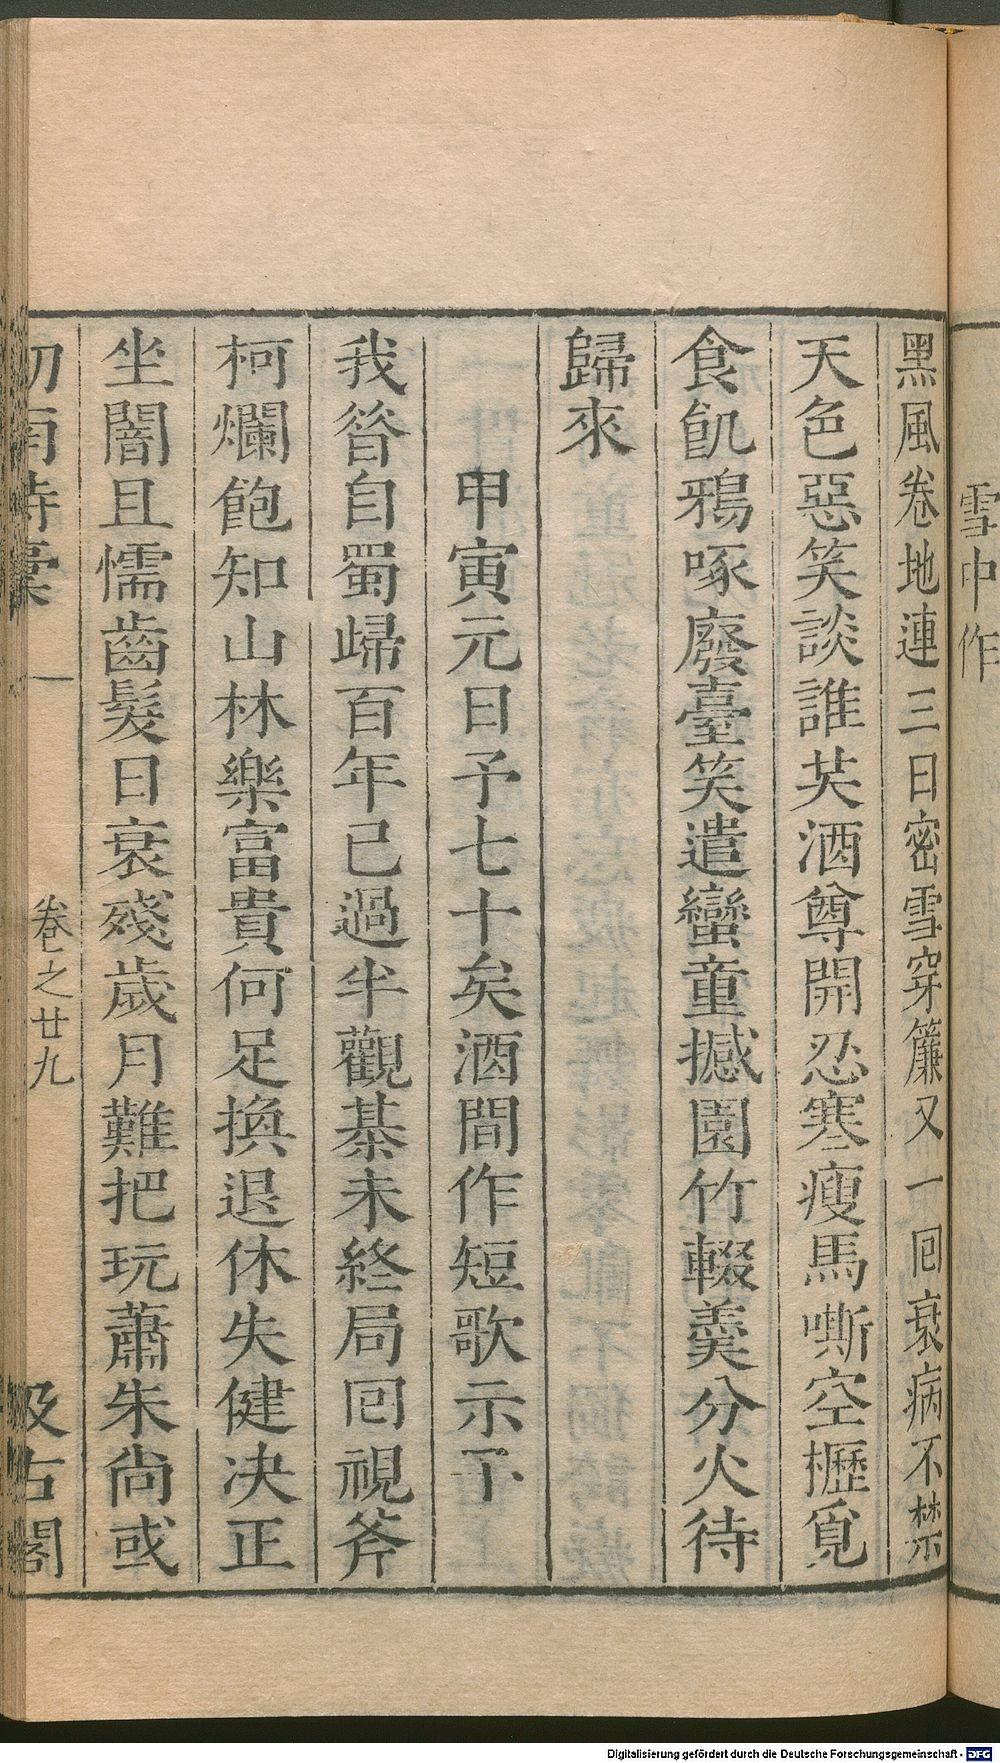 雪中作
黑風卷地連三日密雪穿簾又一囘衰病不禁
天色惡笑談誰芺酒尊開忍寒瘦馬嘶空櫪覓
食飢鴉啄廢臺笑遣蠻童撼園竹輟羹分火待
歸來
甲寅元日予七十矣酒間作短歌示子
我昝自蜀歸百年已過半觀棊未終局囘視斧
柯爛飽知山林樂富貴何足換退休失健決正
坐闇且懦齒髮日衰殘歲月難把玩蕭朱尚或
劒南詩稾
卷之廿九
汲古閣
Digitalisierung gefördert durch die Deutsche Forschungsgemeinschaft - DFG